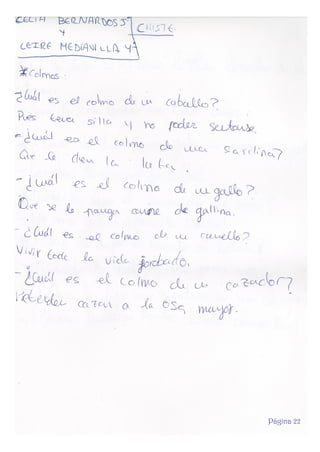 CELIA BERNARDOS 5º
Y
CHISTE.
LEIRE MEDIAVILLA 4º
*Colmos:
¿Cuál es el colmo de un caballo?
Pues tener silla y no poder sentarse.
- ¿Cuál es el colmo de una sardina?
Que le den la lata.
- ¿Cuál es el colmo de un gallo?
Que se le ponga carne de gallina.
- ¿Cuál es el colmo de un camello?
Vivir toda la vida jorobado.
- ¿Cuál es el colmo de un cazador?
Pretender cazar a la osa mayor.
Página 22